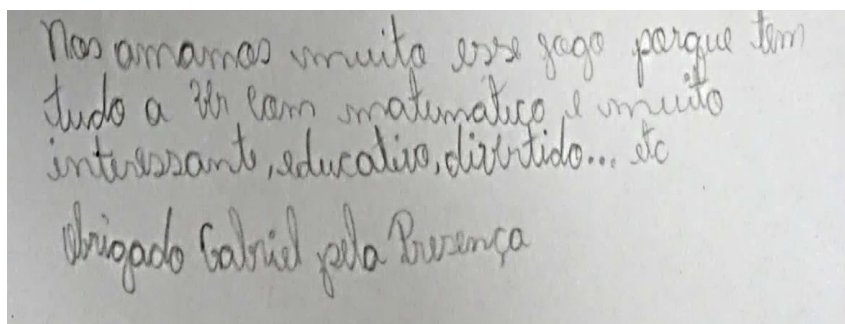 Nos amamos muito esse jogo porque tem
tudo a ver com matematica e muito
interessante, educativo, divertido... etc
Obrigado Gabriel pela Presença